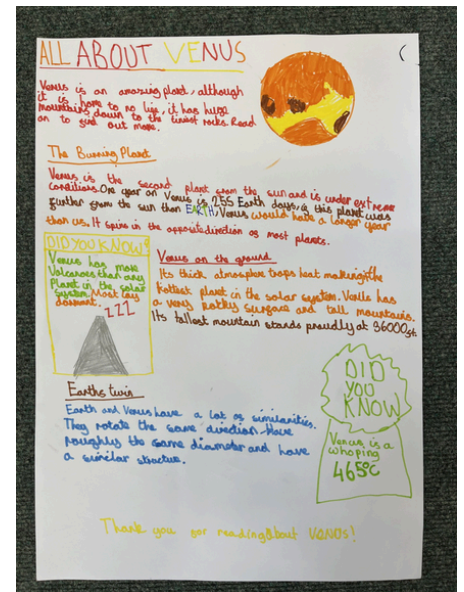 ALL ABOUT VENUS
Venus is an amazing planet, although
it is home to no lie, it has huge
mountains down to the tiniest rocks. Read
on to find out more.
The Burning Planet
Venus is the second planet from the sun and is under extreme
conditions. One year on Venus is 255 Earth days, if this planet was
further from the sun than EARTH, Venus would have a longer year
than us. It spins in the opposite direction as most planets.
DID YOU KNOW?
Venus has more
Volcanoes than any
Planet in the solar
system. Most lay
dormant.
ZZZ
Venus on the ground
Its thick atmosphere traps heat making the
hottest planet in the solar system. Venus has
a very rocky surface and tall mountains.
Its tallest mountain stands proudly at 36000ft.
Earths twin
Earth and Venus have a lot of similarities.
They rotate the same direction. Have
roughly the same diameter and have
a similar structure.
DID
YOU
KNOW
Venus is a
whoping
465°C
Thank you for reading about VENUS!